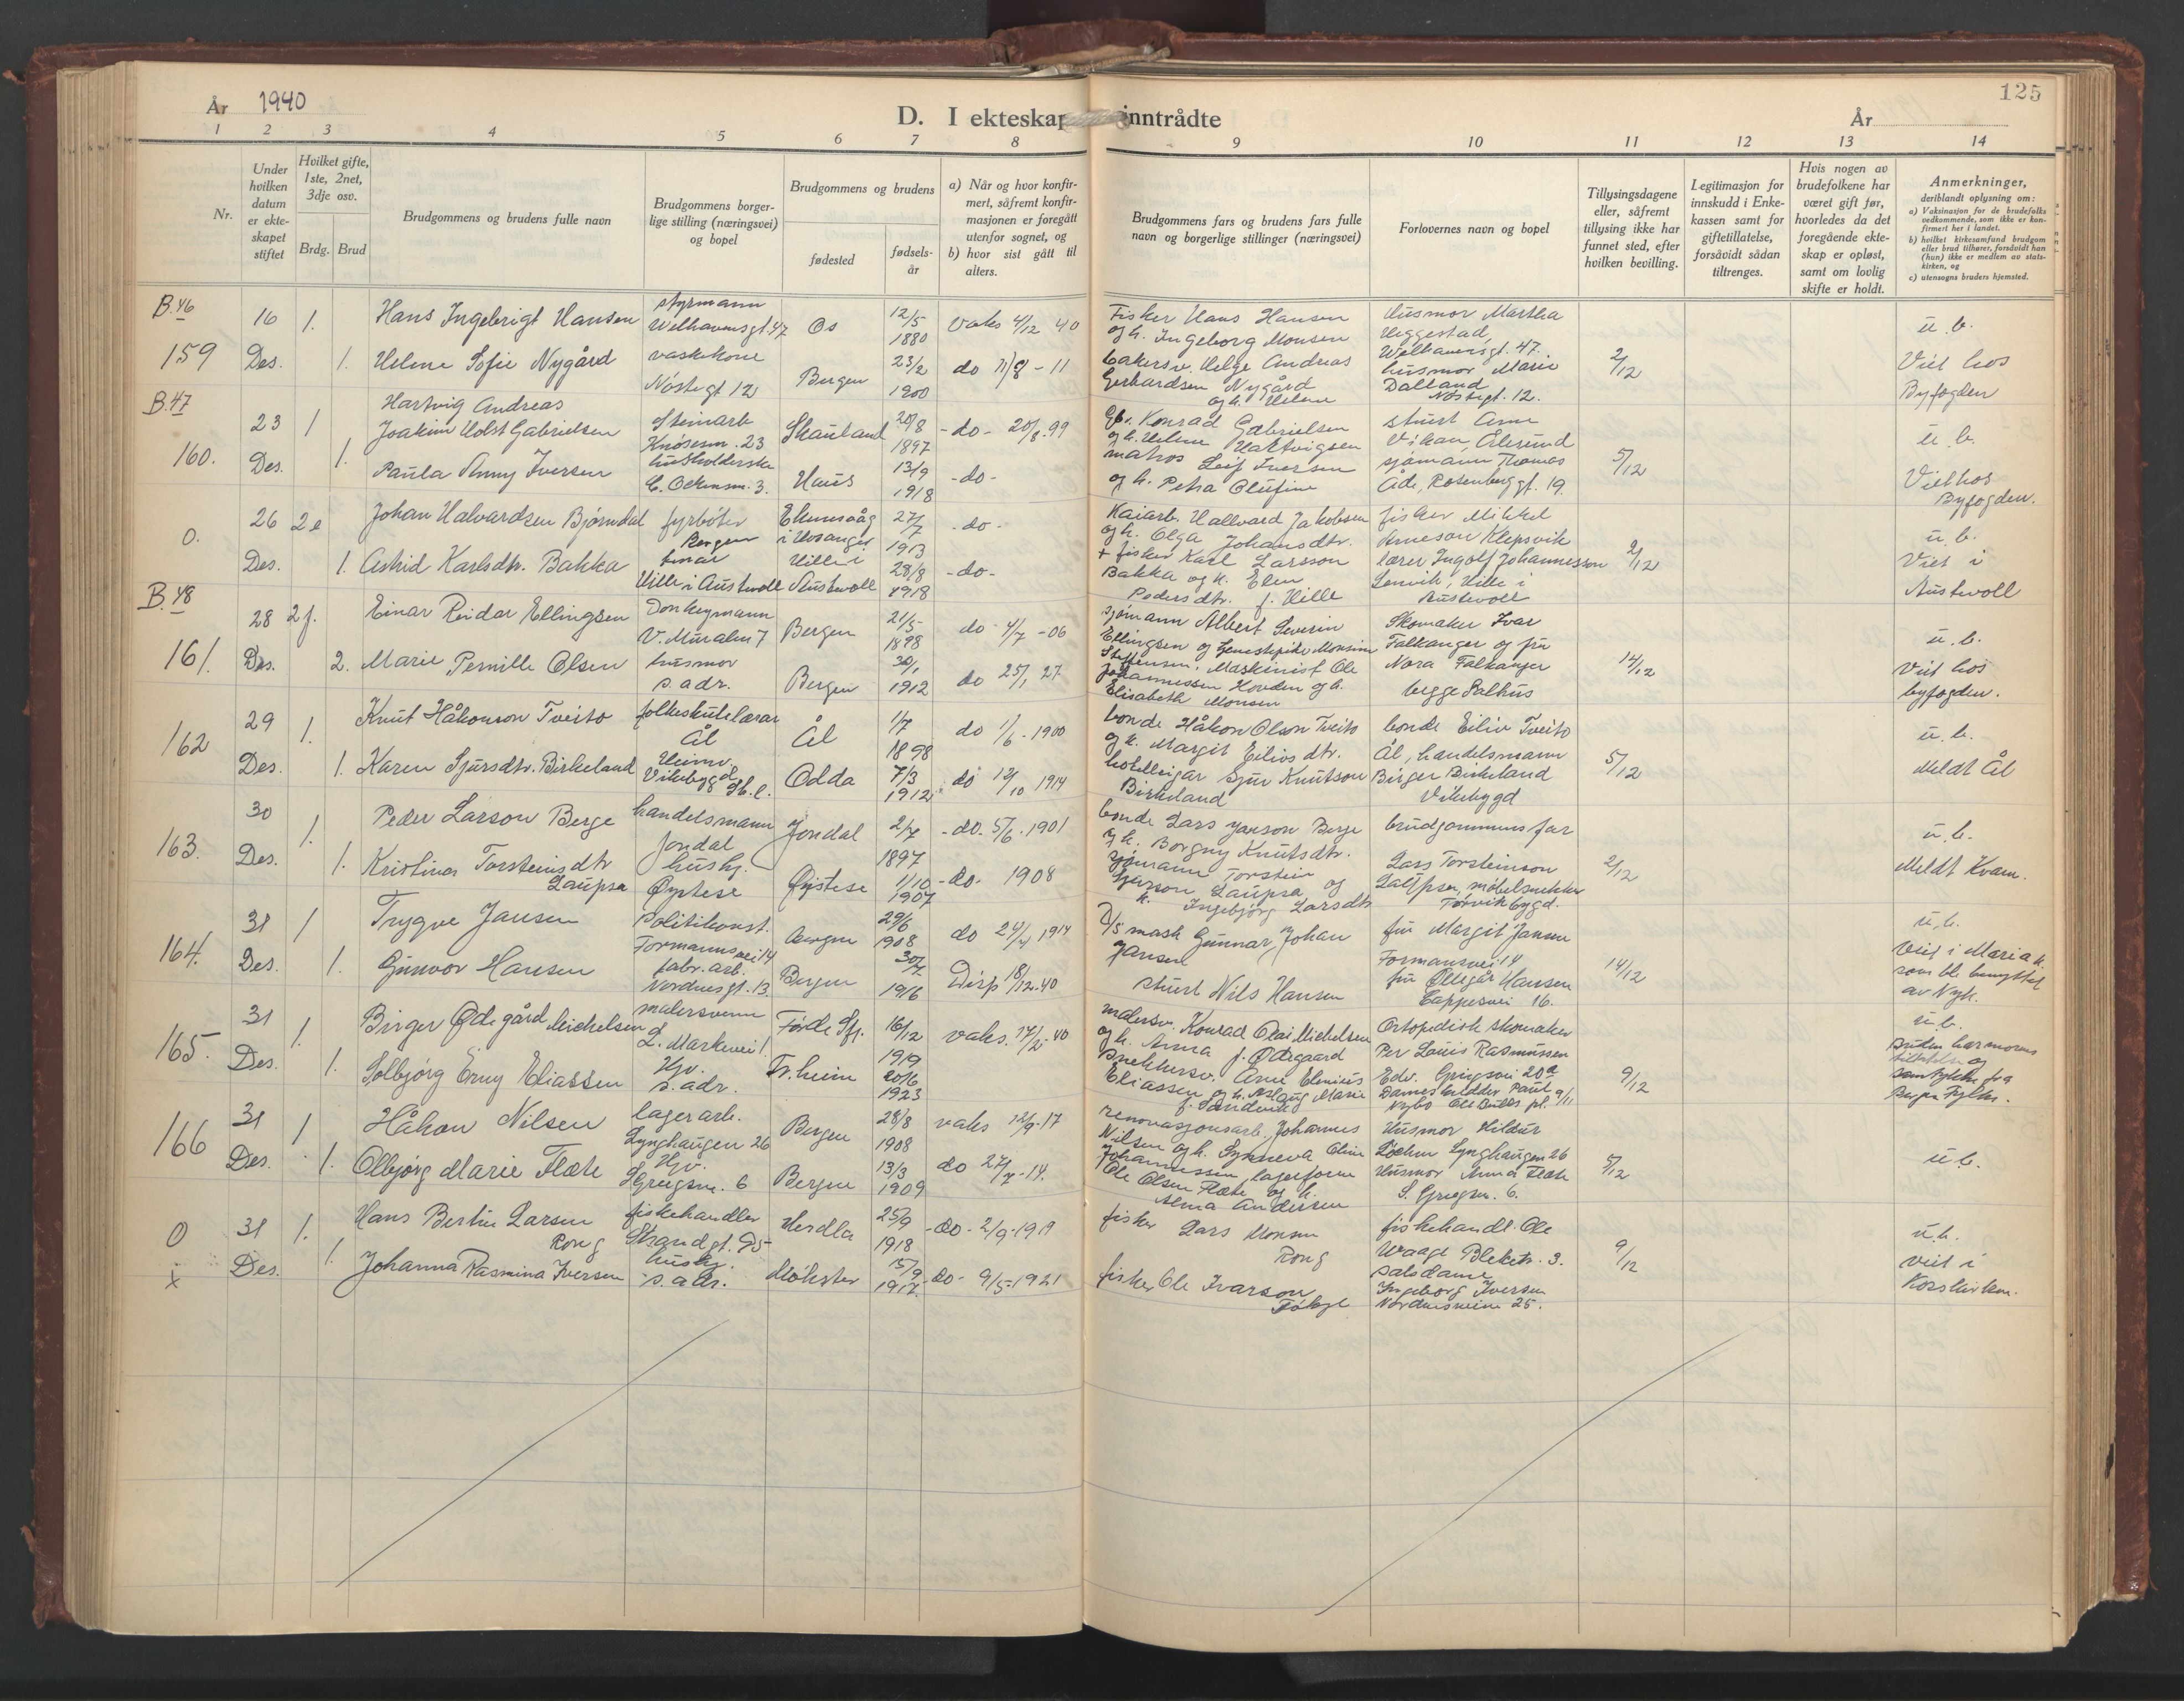 År 1940
D. I ekteskap inntrådte
År
125
1 2 3 4 5 6 7 8 9 10 11 12 13 14
Nr.
Under hvilken datum er ekteskapet stiftet
Hvilket gifte, 1ste, 2net, 3dje osv.
Brdg. Brud
Brudgommens og brudens fulle navn
Brudgommens borgerlige stilling (næringsvei) og bopel
Brudgommens og brudens
fødested
fødselsår
a) Når og hvor konfirmert, såfremt konfirmasjonen er foregått utenfor sognet, og
b) hvor sist gått til alters.
Brudgommens fars og brudens fars fulle navn og borgerlige stillinger (næringsvei)
Forlovernes navn og bopel
Tillysingsdagene eller, såfremt tillysing ikke har funnet sted, efter hvilken bevilling.
Legitimasjon for innskudd i Enkekassen samt for giftetillatelse, forsåvidt sådan tiltrenges.
Hvis nogen av brudefolkene har været gift før, hvorledes da det foregående ekteskap er opløst, samt om lovlig skifte er holdt.
Anmerkninger, deriblandt oplysning om:
a) Vaksinasjon for de brudefolks vedkommende, som ikke er konfirmert her i landet.
b) hvilket kirkesamfund brudgom eller brud tilhører, forsåvidt han (hun) ikke er medlem av statskirken, og
c) utensogns bruders hjemsted.
B.46
159
16 Des.
1. 1.
Hans Ingebrigt Hansen
Helene Sofie Nygård
styrmann
Welhavensgt. 47
vaskekone
Nøstegt 12
Os
Bergen
12/5 1880
23/2 1900
Vaks 4/12 40
do 11/8 - 11
Fisker Hans Hansen
og h. Ingeborg Monsen
bakersv. Helge Andreas
Gerhardsen Nygård
og h. Helene
Husmor Martha
Heggestad,
Welhavensgt. 47.
husmor Marie
Dalland
Nøstegt. 12.
2/12
u. b.
Viet hos
Byfogden
B.47
160.
23 Des.
1 1.
Hartvig Andreas
Joakim Holst Gabrielsen
Paula Anny Iversen
Steinarb
Knøsesm. 23
husholderske
Skånland
Haus
20/8 1897
13/9 1918
-do- 20/8.99
-do-
Konrad Gabrielsen
og h. Helene Hartvigsen
matros Leif Iversen
og h. Petra Olufine
stuert Arne
Vikan, Ålesund
sjømann Thomas
Åde, Rosenberggt. 19.
5/12
u. b.
Viet hos
Byfogden.
0.
26 Des.
2e 1.
Johan Halvardsen Bjørndal
Astrid Karlsdtr. Bakka
fyrbøter
Bergen
Hille i Austevoll
i Hosanger
Hille i
Austevoll
27/7 1913
28/8 1918
-do-
-do-
Kaiarb. Hallvard Jakobsen
og h. Olga Johansdtr.
+ fisker Karl Larsson
Bakka og h. Elen
Pedersdtr. f. Hille
fisker Mikkel
Arneson Klepsvik
lærer Ingolf Johannesson
Lenvik, Hille i
Austevoll
2/12
u. b.
Viet i
Austevoll
B.48
161.
28 Des.
2f. 2.
Einar Reidar Ellingsen
Marie Pernille Olsen
Donkeymann
V. Muralm 7
husmor
s. adr.
Bergen
Bergen
21/5 1898
30/1 1912
do 4/7 - 06
do 25/1 27
sjømann Albert Severin
Ellingsen og
Steffensen. Maskinist Ole
Johannessen Hovden og h.
Elisabeth Monsen
Skomaker Ivar
Falkanger og fru
Nora Falkanger
begge Salhus
14/12
u. b.
Viet hos
byfogden.
162
29 Des.
1. 1.
Knut Håkonson Tveito
Karen Sjursdtr. Birkeland
folkeskulelærar
Ål
Heimv.
Vikebygd
Ål
Odda
1/7 1898
7/3 1912
do 1/6 - 1900
do 12/10 1914
bonde Håkon Olson Tveito
og h. Margit Eilivsdtr.
hotelleigar Sjur Knutson
Birkeland
bonde Eiliv Tveito
Ål, handelsmann
Birger Birkeland
Vikebygd
5/12
u. b.
Meldt Ål
163.
30 Des.
1. 1.
Peder Larson Berge
Kristina Torsteinsdtr
Laupsa
handelsmann
Jondal
hush.
Øystese
Jondal
Øystese
2/7 1897
1/10 1907
-do- 5/6 - 1901
-do- 1908
bonde Lars Janson Berge
og h. Borgny Knutsdtr.
sjømann Torstein
Larson Laupsa og
h. Ingebjørg Larsdtr
brudgommens far
Lars Torsteinson
Laupsa, møbelsnekker
Torvikbygd.
2/12
u. b.
Meldt Kvam.
164.
31 Des.
1 1.
Trygve Jansen
Gunvor Hansen
Politikonst.
Formannsvei 14
fabr. arb.
Nordnesgt. 13.
Bergen
Bergen
29/6 1908
30/7 1916
do 24/4 1914
Disp 18/12-40
D/S mask Gunnar Johan
Jansen
stuert Nils Hansen
fru Margit Jansen
Formansvei 14
fru Ollegår Hansen
Cappesvei 16.
14/12
u. b.
Viet i Mariak.
som ble benyttet
av Nyk.
165.
31 Des.
1. 1.
Birger Ødegård Michelsen
Solbjørg Erny Eliassen
malersvenn
L. Markevei 1.
Hjv.
s. adr.
Førde Sfj.
Tr.heim
16/12 1919
20/6 1923
vaks. 17/2-40
malersv. Konrad Olai Michelsen
og h. Anna f. Ødegaard
snekkersv. Arne Elenius
Eliassen og h. Aslaug Marie
f. Sandvik
Ortopedisk skomaker
Per Louis Rasmussen
Edv. Griegsvei 20a
Dameskredder Paul
Nybø Ole Bulls pl. 9/11
9/12
u. b.
Bruden har morens
tillatelse og
samtykke fra
Bergen Fylke.
166
31 Des.
1 1.
Håkon Nilsen
Olbjørg Marie Flæte
lagerarb.
Lynghaugen 26
Hjv.
S. Griegsv. 6
Bergen
Bergen
28/8 1908
13/3 1909
vaks 12/9-17
do 27/7-14.
renovasjonsarb. Johannes
Nilsen og h. Synneva Oline
Johannessen, lagerform
Ole Olsen Flæte og h.
Alma Andersen
Husmor Hildur
Lynghaugen 26
Husmor Anna Flæte
S. Griegsv. 6.
5/12
u. b.
0
x
31 Des.
1. 1.
Hans Bertin Larsen
Rong
Johanna Rasmina Iversen
fiskehandler
Strandgt. 95
hush.
s. adr.
Herdla
Møkster
25/9 1918
15/9 1917.
-do- 2/9-1919
-do- 9/5-1921
fisker Lars Monsen
Rong
fisker Ole Ivarson
fiskehandl. Ole
Waage Bleket. 3.
salsdame
Ingeborg Iversen
Nordnesveien 25.
9/12
u. b.
viet i
Korskirken.